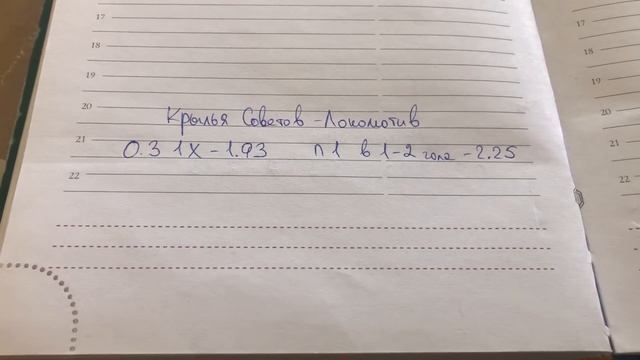 17
17
18
18
19
19
20
Крылья Советов - Локомотив
20
21
О.З 1Х - 1.93 П1 в 1-2 гола - 2.25
21
22
22